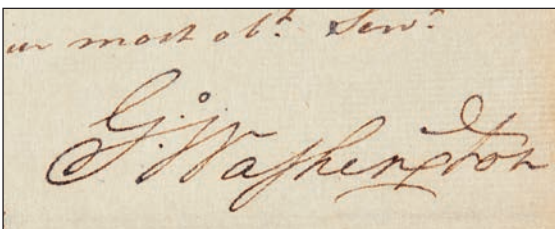 ur most obt. Servt.
G:Washington